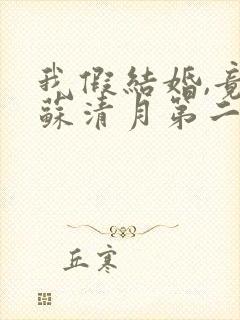 我假结婚,竟
苏清月第二
丘寒